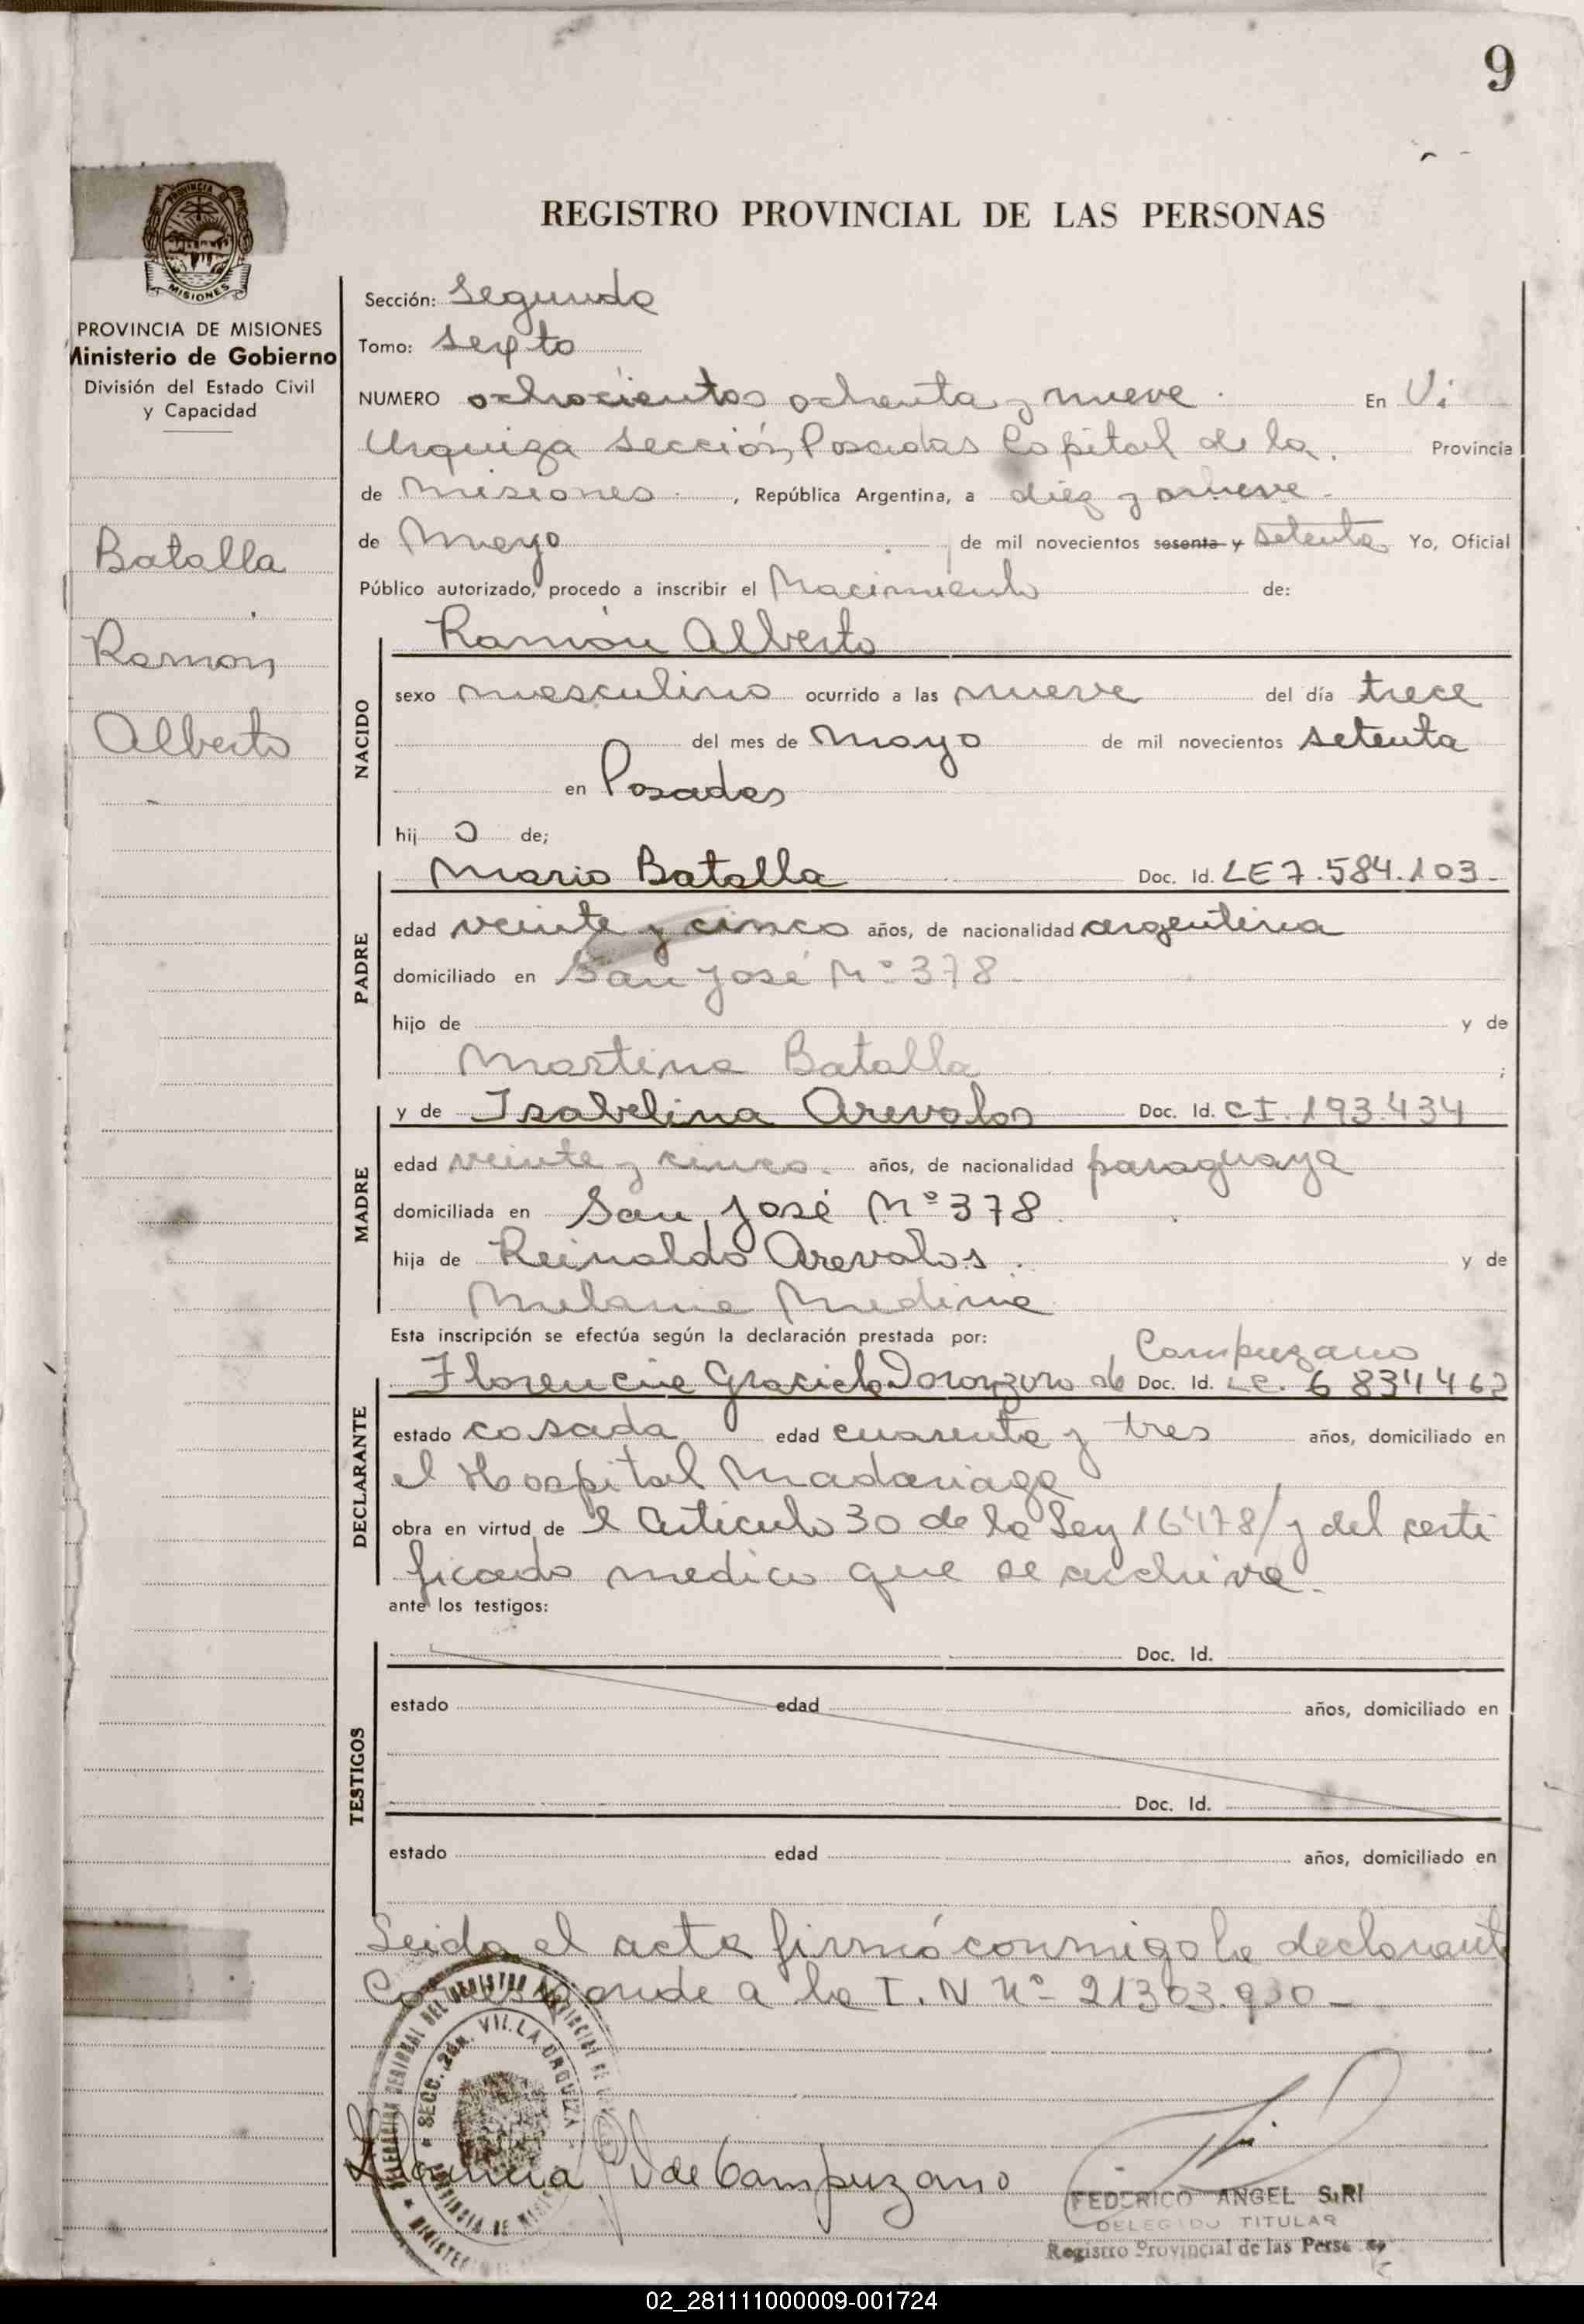 9
PROVINCIA
MISIONES
PROVINCIA DE MISIONES
Ministerio de Gobierno
División del Estado Civil
y Capacidad
Batalla
Ramón
Alberto
REGISTRO PROVINCIAL DE LAS PERSONAS
Sección: Segunda
Tomo: Sexto
NUMERO ochocientos ochenta y nueve. En Vi
Urquiza Sección, Posadas Capital de la. Provincia
de Misiones, República Argentina, a diez y nueve
de Mayo de mil novecientos sesenta y setenta Yo, Oficial
Público autorizado, procedo a inscribir el Nacimiento de:
Ramón Alberto
NACIDO
sexo masculino ocurrido a las nueve del día trece
del mes de Mayo de mil novecientos setenta
en Posadas
hij o de;
PADRE
Mario Batalla Doc. Id. LE 7.584.103-
edad veinte y cinco años, de nacionalidad argentina
domiciliado en San José Nº 378
hijo de y de
Martina Batalla ;
MADRE
y de Isabelina Arevalos Doc. Id. CI. 193.434
edad veinte y cinco. años, de nacionalidad paraguaya
domiciliada en San José Nº 378
hija de Reinaldo Arevalos. y de
Melania Medina
Esta inscripción se efectúa según la declaración prestada por:
Campuzano
DECLARANTE
Florencia Graciela de Doc. Id. LC. 6 834462
estado casada edad cuarenta y tres años, domiciliado en
el Hospital Madariaga
obra en virtud de l Articulo 30 de la Ley 16478/ y del certi
ficado medico que se archiva.
ante los testigos:
TESTIGOS
Doc. Id.
estado edad años, domiciliado en
Doc. Id.
estado edad años, domiciliado en
Leida el acta firmó conmigo la declarant
Corresponde a la I. N Nº 21303.930-
SECC. 2da. VILLA URQUIZA
PROVINCIA DE MISIONES
Florencia de Campuzano
FEDERICO ANGEL SIRI
DELEGADO TITULAR
Registro Provincial de las Pers
02_281111000009-001724